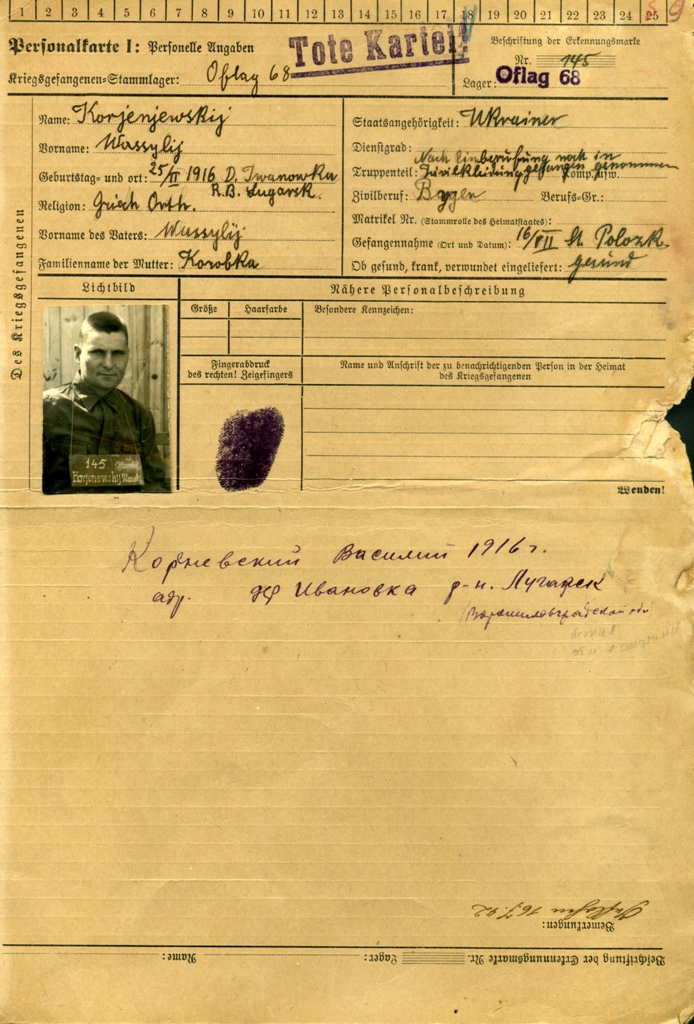 1 2 3 4 5 6 7 8 9 10 11 12 13 14 15 16 17 18 19 20 21 22 23 24 25
Personalkarte I: Personelle Angaben
Tote Kartei!
Beschriftung der Erkennungsmarke
Nr. 145
Kriegsgefangenen-Stammlager: Oflag 68
Lager: Oflag 68
Des Kriegsgefangenen
Name: Korjenjewskij
Vorname: Wassylij
Geburtstag- und ort: 25/II 1916 D. Iwanowka
R.B. Lugarsk.
Religion: Griech Orth.
Vorname des Vaters: Wassylij
Familienname der Mutter: Korobka
Staatsangehörigkeit: Ukrainer
Dienstgrad: Nach Einberufung noch in
Truppenteil: Zivilkleidung gefangen genommen Komp. usw.
Zivilberuf: Berufs-Gr.:
Matrikel Nr. (Stammrolle des Heimatstaates):
Gefangennahme (Ort und Datum): 16/VII St Polozk.
Ob gesund, krank, verwundet eingeliefert: gesund
Lichtbild
Nähere Personalbeschreibung
Größe Haarfarbe
Besondere Kennzeichen:
Fingerabdruck
des rechten! Zeigefingers
Name und Anschrift der zu benachrichtigenden Person in der Heimat
des Kriegsgefangenen
145
Wenden!
Василий 1916 г.
адр. Ивановка р-н. Лугарск
(Ворошиловградской об
Bemerkungen:
16.7.42
Beschriftung der Erkennungsmarke Nr. Lager: Name: